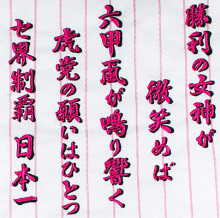 勝利の女神が
微笑めば
六甲颪が鳴り響く
虎党の願いはひとつ
世界制覇 日本一